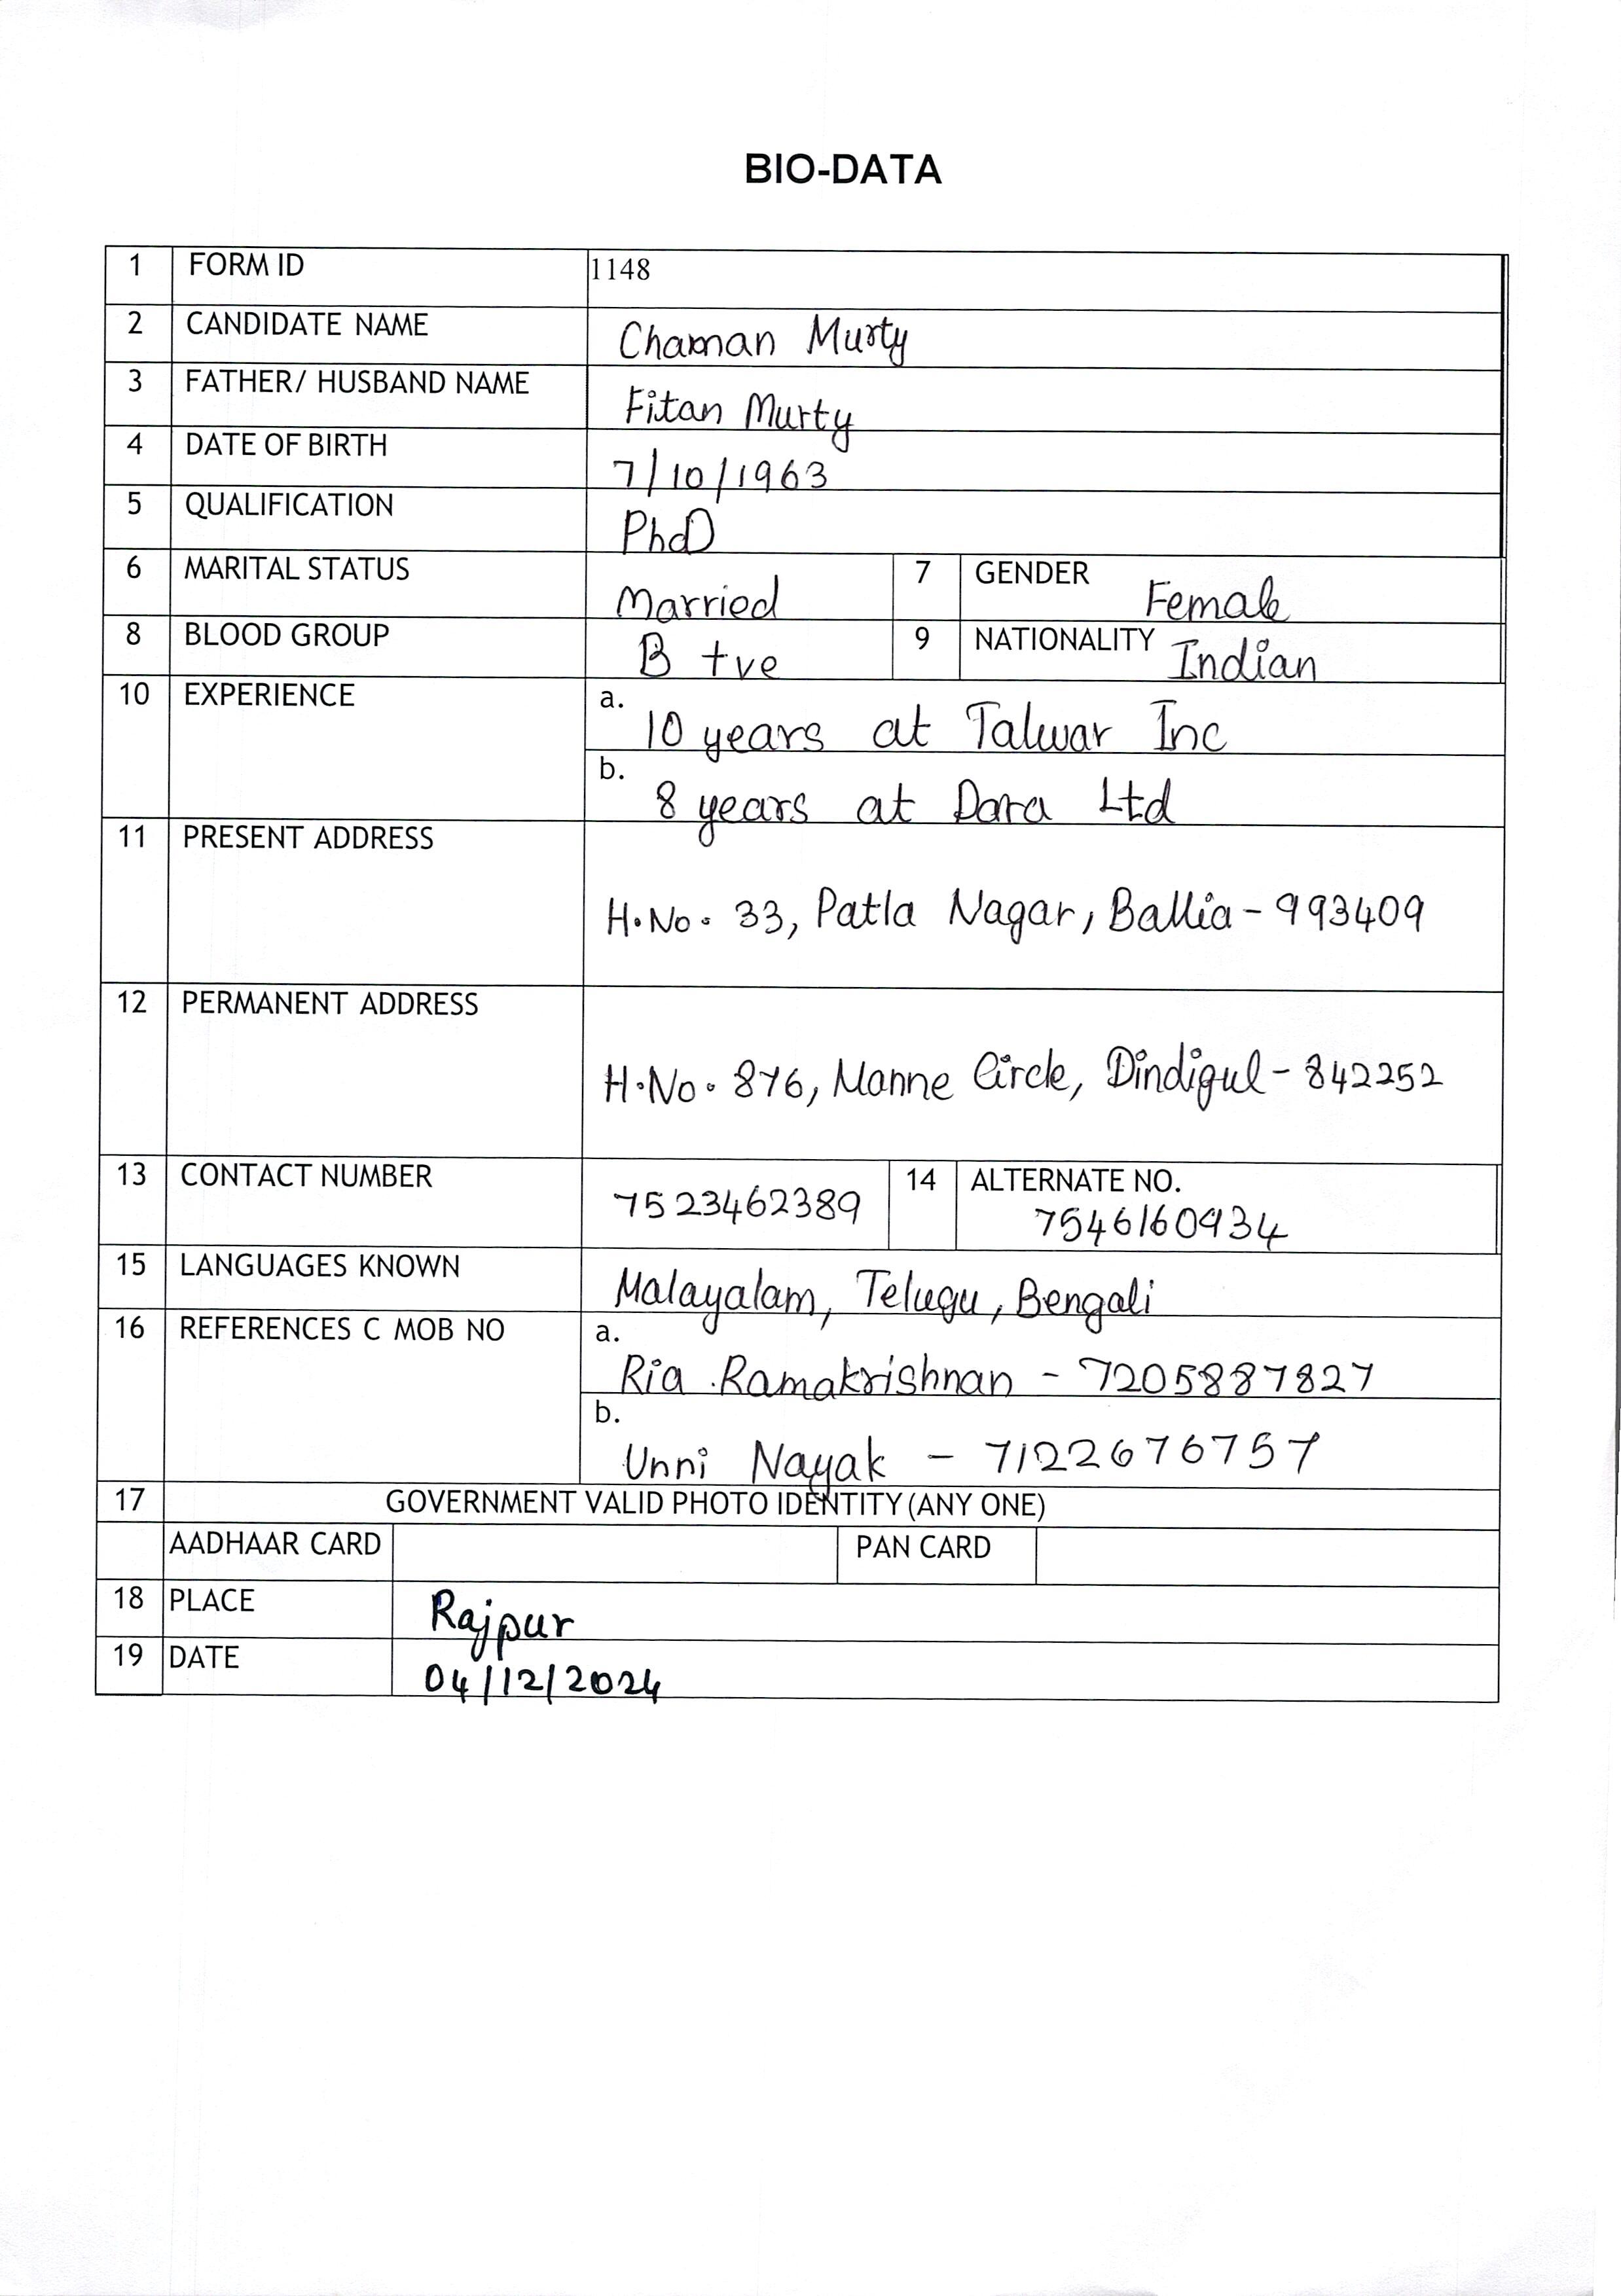 BIO-DATA
1 FORM ID 1148
2 CANDIDATE NAME Chaman Murty
3 FATHER/ HUSBAND NAME Fitan Murty
4 DATE OF BIRTH 7/10/1963
5 QUALIFICATION PhD
6 MARITAL STATUS Married 7 GENDER Female
8 BLOOD GROUP B +ve 9 NATIONALITY Indian
10 EXPERIENCE a. 10 years at Talwar Inc
b. 8 years at Dara Ltd
11 PRESENT ADDRESS
H.No. 33, Patla Nagar, Ballia - 993409
12 PERMANENT ADDRESS
H.No. 876, Manne Circle, Dindigul - 842252
13 CONTACT NUMBER 7523462389 14 ALTERNATE NO.
7546160934
15 LANGUAGES KNOWN Malayalam, Telugu, Bengali
16 REFERENCES C MOB NO a.
Ria Ramakrishnan - 7205887827
b.
Unni Nayak - 7122676757
17 GOVERNMENT VALID PHOTO IDENTITY (ANY ONE)
AADHAAR CARD PAN CARD
18 PLACE Rajpur
19 DATE 04/12/2024